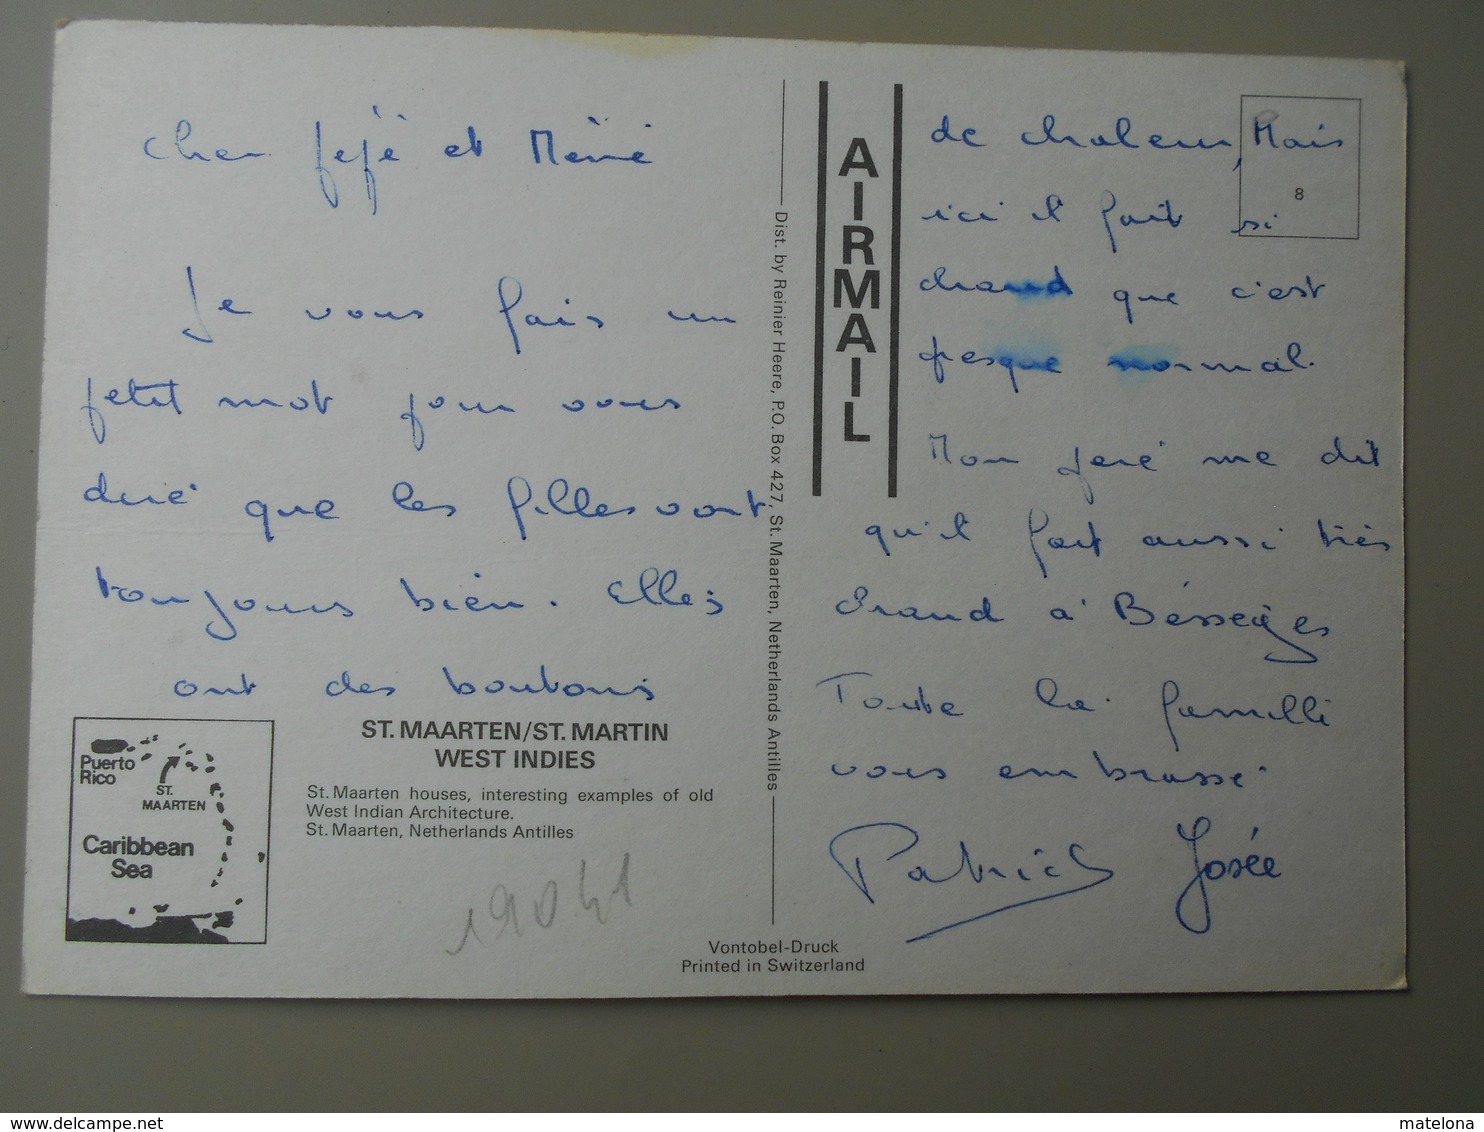 Cher Jéjé et Mémé
Je vous fais un
petit mot pour vous
dire que les filles vont
toujours bien. Elles
ont des boutons
de chaleur, Mais
ici il fait si
chaud que c'est
presque normal.
Mon père me dit
qu'il fait aussi très
chaud à Bessèges
Toute la famille
vous embrasse.
Patrick Josée
AIRMAIL
8
Dist. by Reinier Heere, P.O. Box 427, St. Maarten, Netherlands Antilles
Puerto
Rico
ST.
MAARTEN
Caribbean
Sea
ST. MAARTEN/ST. MARTIN
WEST INDIES
St. Maarten houses, interesting examples of old
West Indian Architecture.
St. Maarten, Netherlands Antilles
Vontobel-Druck
Printed in Switzerland
www.delcampe.net
matelona